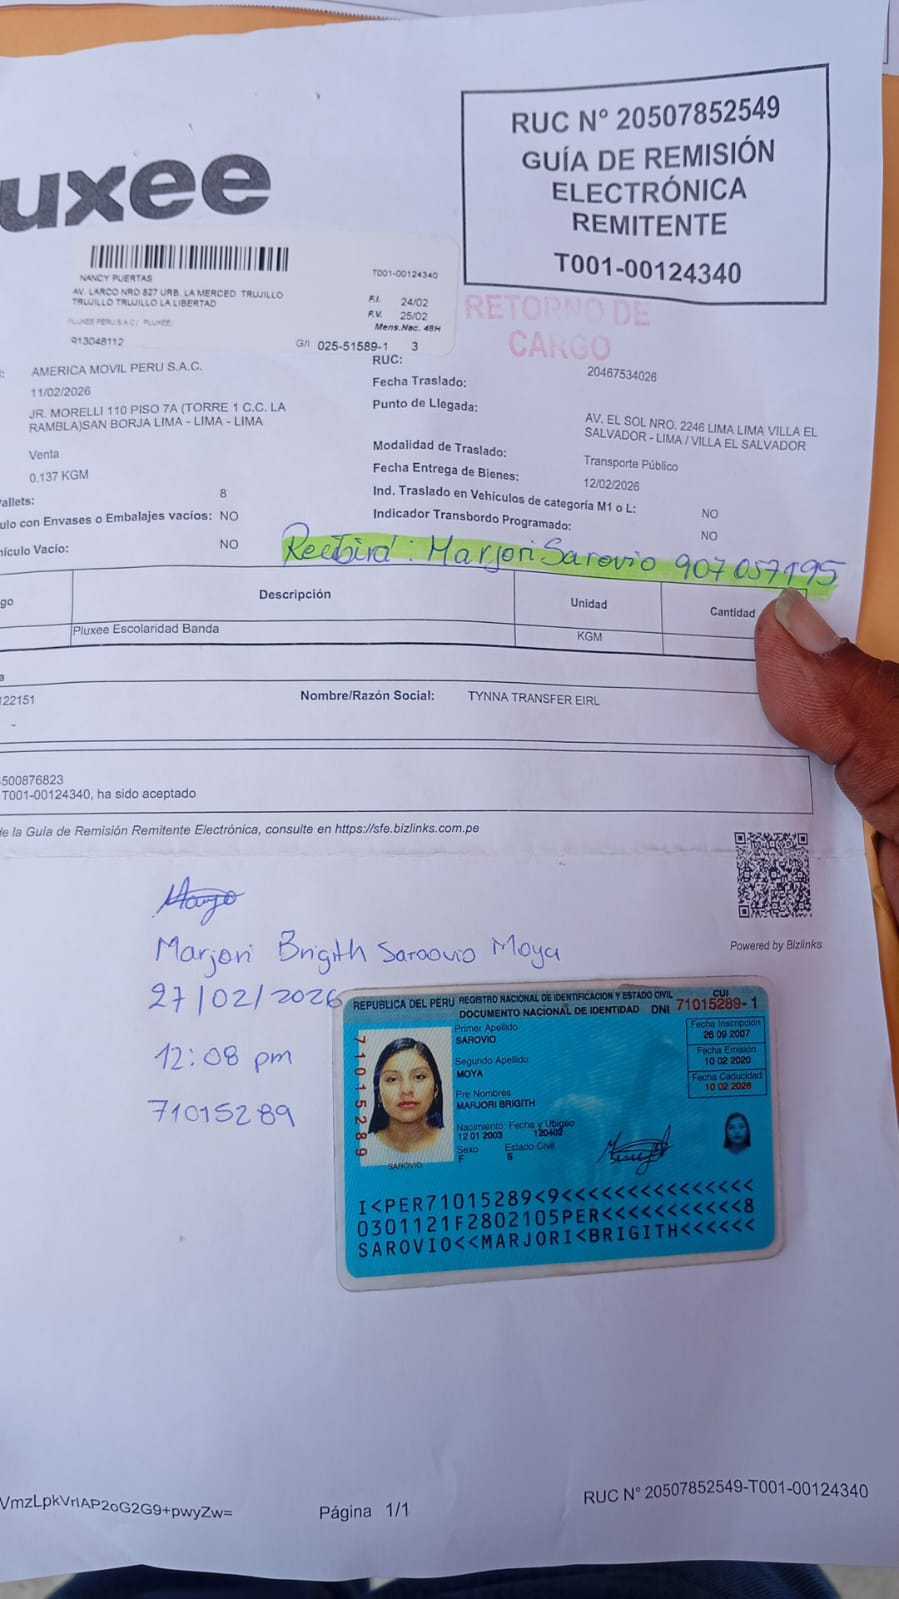 uxee
RUC N° 20507852549
GUÍA DE REMISIÓN
ELECTRÓNICA
REMITENTE
T001-00124340
RETORNO DE
CARGO
NANCY PUERTAS
AV. LARCO NRO 827 URB. LA MERCED TRUJILLO
TRUJILLO TRUJILLO LA LIBERTAD
PLUXEE PERU S.A.C / PLUXEE/
913048112
T001-00124340
F.I. 24/02
F.V. 25/02
Mens.Nac. 48H
G/I 025-51589-1 3
AMERICA MOVIL PERU S.A.C.
11/02/2026
JR. MORELLI 110 PISO 7A (TORRE 1 C.C. LA
RAMBLA)SAN BORJA LIMA - LIMA - LIMA
Venta
0.137 KGM
allets: 8
ulo con Envases o Embalajes vacíos: NO
hículo Vacío: NO
RUC: 20467534026
Fecha Traslado:
Punto de Llegada: AV. EL SOL NRO. 2246 LIMA LIMA VILLA EL
SALVADOR - LIMA / VILLA EL SALVADOR
Modalidad de Traslado: Transporte Público
Fecha Entrega de Bienes: 12/02/2026
Ind. Traslado en Vehículos de categoría M1 o L: NO
Indicador Transbordo Programado: NO
Recibirá: Marjori Sarovio 907 057195
go Descripción Unidad Cantidad
Pluxee Escolaridad Banda KGM
a
122151 Nombre/Razón Social: TYNNA TRANSFER EIRL
-
500876823
T001-00124340, ha sido aceptado
de la Guía de Remisión Remitente Electrónica, consulte en https://sfe.bizlinks.com.pe
Powered by Bizlinks
Marjori Brigith Saroovio Moya
27/02/2026
12:08 pm
71015289
REPUBLICA DEL PERU REGISTRO NACIONAL DE IDENTIFICACION Y ESTADO CIVIL
DOCUMENTO NACIONAL DE IDENTIDAD DNI 71015289-1
CUI
Primer Apellido
SAROVIO
Segundo Apellido
MOYA
Pre Nombres
MARJORI BRIGITH
Nacimiento: Fecha y Ubigeo
12 01 2003 120402
Sexo Estado Civil
F S
Fecha Inscripción
26 09 2007
Fecha Emisión
10 02 2020
Fecha Caducidad
10 02 2028
71015289
SAROVIO
I<PER71015289<9<<<<<<<<<<<<<<<
0301121F2802105PER<<<<<<<<<<<8
SAROVIO<<MARJORI<BRIGITH<<<<<<
VmzLpkVrIAP2oG2G9+pwyZw=
Página 1/1
RUC N° 20507852549-T001-00124340